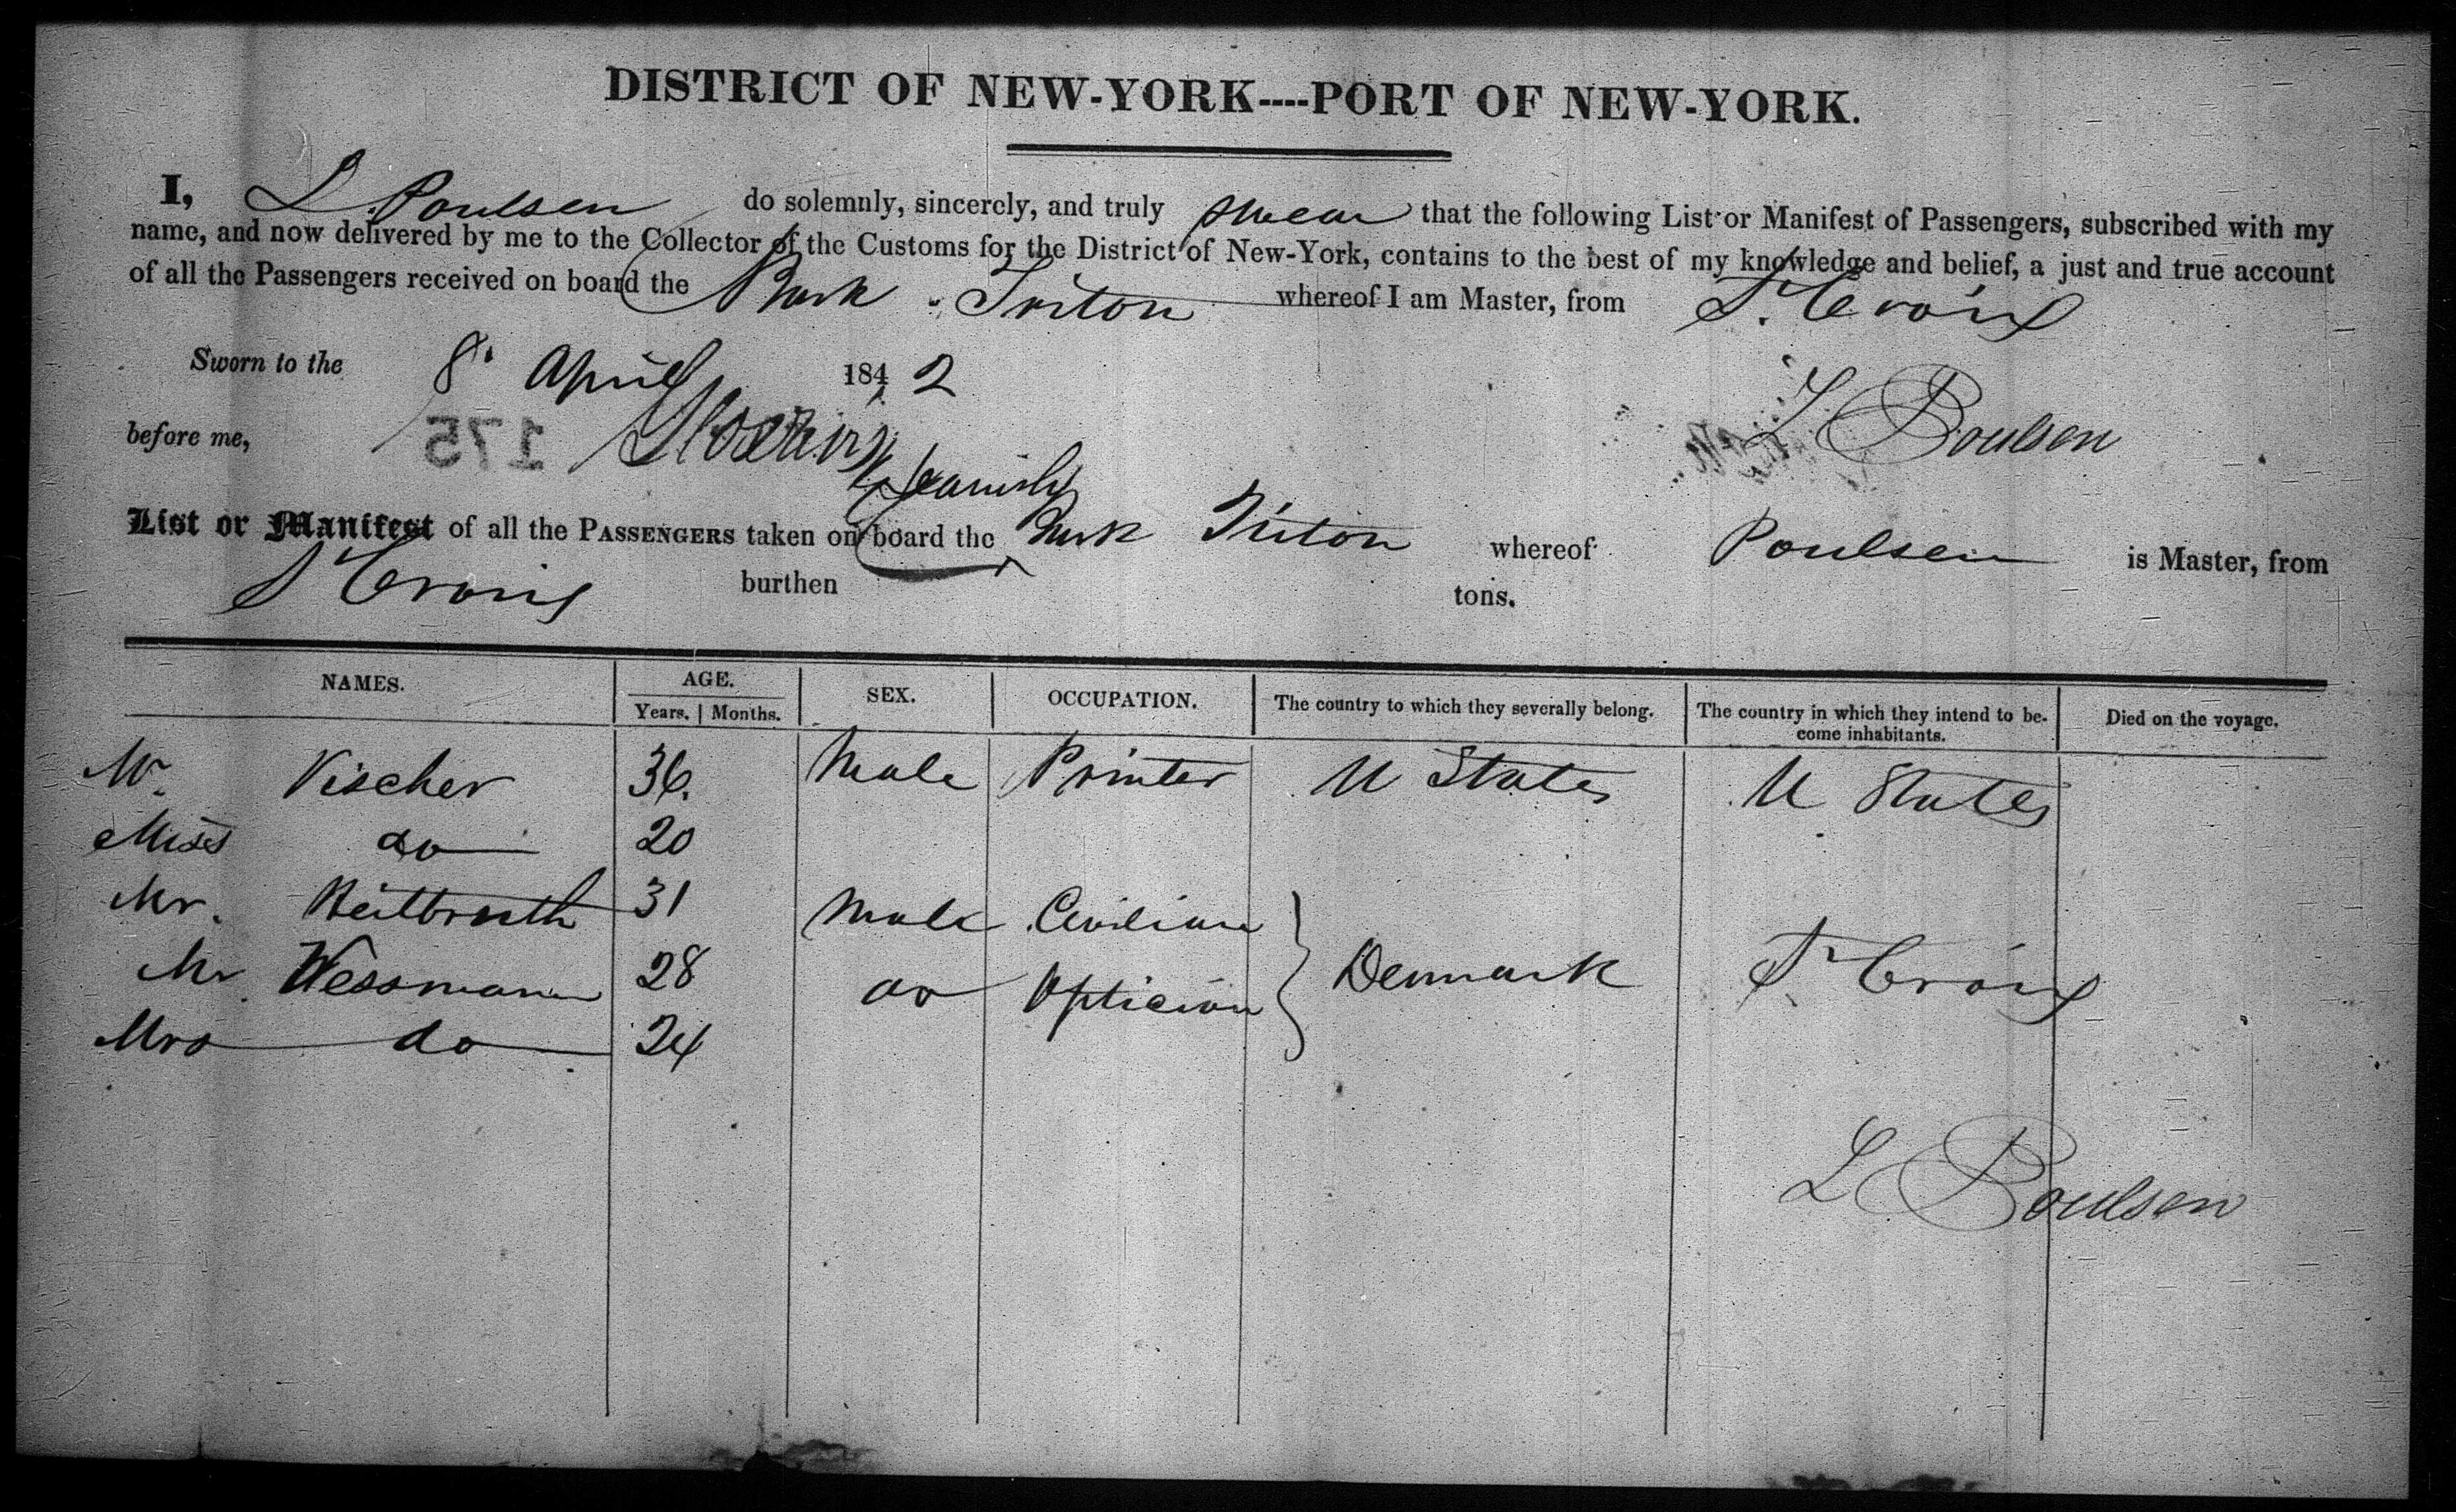 DISTRICT OF NEW-YORK----PORT OF NEW-YORK.
I, L. Poulsen do solemnly, sincerely, and truly swear that the following List or Manifest of Passengers, subscribed with my
name, and now delivered by me to the Collector of the Customs for the District of New-York, contains to the best of my knowledge and belief, a just and true account
of all the Passengers received on board the Bark Triton whereof I am Master, from St. Croix
Sworn to the 8 April 1842
before me, L Poulsen
175
Danish
List or Manifest of all the PASSENGERS taken on board the Bark Triton whereof Poulsen is Master, from
St Croix burthen tons.
NAMES. AGE. SEX. OCCUPATION. The country to which they severally belong. The country in which they intend to be-
come inhabitants. Died on the voyage.
Years. Months.
Mr. Vischer 36. Male Printer U States U States
Miss do 20
Mr. 31 Male Civilian
Mr. Wessmann 28 do Optician Denmark St Croix
Mrs do 24
L Poulsen